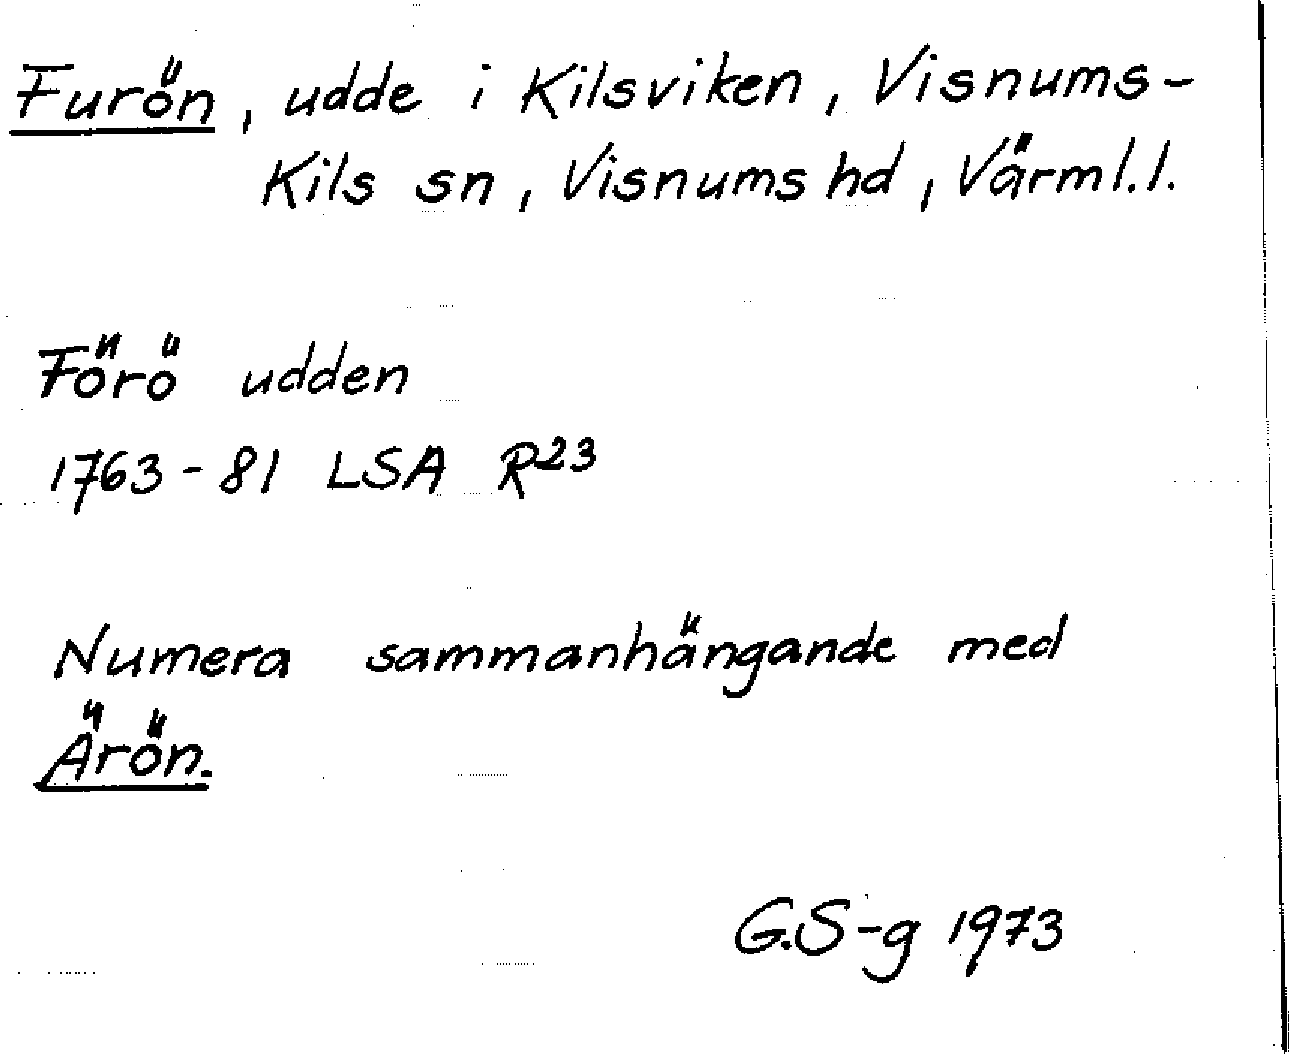 Furön, udde i Kilsviken, Visnums-
Kils sn, Visnums hd, Värml.l.
Förö udden
1763-81 LSA R23
Numera sammanhängande med
Ärön.
G.S-g 1973